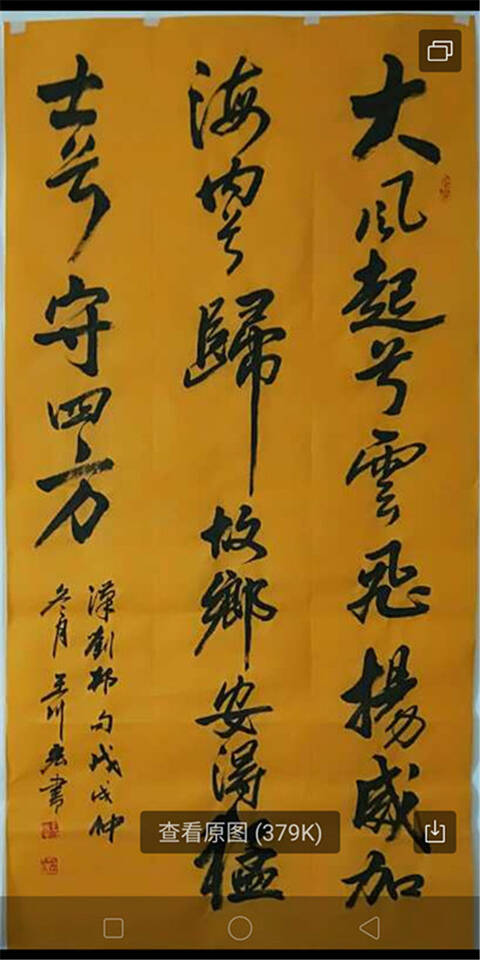 大风起兮雲飛揚威加
海内兮歸故鄉安得猛
士兮守四方
漢劉邦句戊戌仲
冬月王川書
查看原图 (379K)